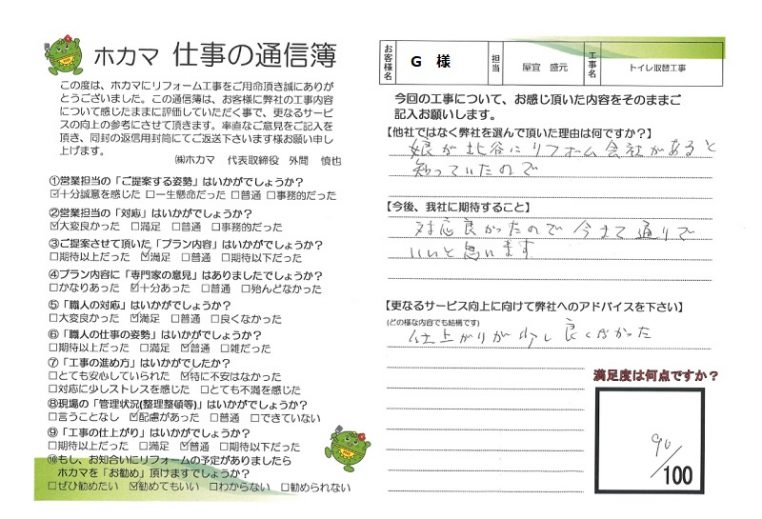 ホカマ 仕事の通信簿
この度は、ホカマにリフォーム工事をご用命頂き誠にありが
とうございました。この通信簿は、お客様に弊社の工事内容
について感じたままに評価していただく事で、更なるサービ
スの向上の参考にさせて頂きます。率直なご意見をご記入を
頂き、同封の返信用封筒にてご返送下さいます様お願い申し
上げます。
㈱ホカマ 代表取締役 外間 慎也
①営業担当の「ご提案する姿勢」はいかがでしょうか？
☑十分誠意を感じた □一生懸命だった □普通 □事務的だった
②営業担当の「対応」はいかがでしょうか？
☑大変良かった □満足 □普通 □事務的だった
③ご提案させて頂いた「プラン内容」はいかがでしょうか？
□期待以上だった ☑満足 □普通 □期待以下だった
④プラン内容に「専門家の意見」はありましたでしょうか？
□かなりあった ☑十分あった □普通 □殆んどなかった
⑤「職人の対応」はいかがでしょうか？
□大変良かった ☑満足 □普通 □良くなかった
⑥「職人の仕事の姿勢」はいかがでしょうか？
□期待以上だった □満足 ☑普通 □雑だった
⑦「工事の進め方」はいかがでしたか？
□とても安心していられた ☑特に不安はなかった
□対応に少しストレスを感じた □とても不満を感じた
⑧現場の「管理状況(整理整頓等)」はいかがでしょうか？
□言うことなし ☑配慮があった □普通 □できていない
⑨「工事の仕上がり」はいかがでしょうか？
□期待以上だった □満足 ☑普通 □期待以下だった
⑩もし、お知合いにリフォームの予定がありましたら
ホカマを「お勧め」頂けますでしょうか？
□ぜひ勧めたい ☑勧めてもいい □わからない □勧められない
お客様名 G 様 担当 屋宜 盛元 工事名 トイレ取替工事
今回の工事について、お感じ頂いた内容をそのままご
記入お願いします。
【他社ではなく弊社を選んで頂いた理由は何ですか？】
娘が北谷にリフォーム会社があると
知っていたので
【今後、我社に期待すること】
対応良かったので今まで通りで
いいと思います
【更なるサービス向上に向けて弊社へのアドバイスを下さい】
(どの様な内容でも結構です)
仕上がりが少し良くなかった
満足度は何点ですか？
90/100